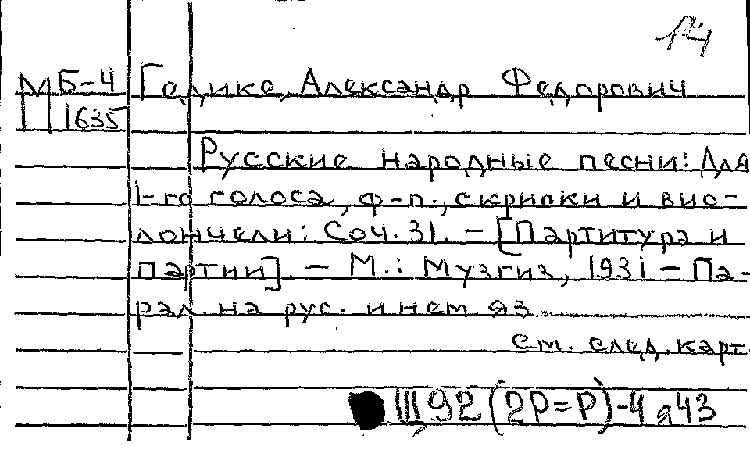 14
М Б-4 Гедике, Александр Федорович
1635
Русские народные песни: Для
1-го голоса, ф-п., скрипки и вио-
лончели: Соч. 31. – [Партитура и
партии]. – М.: Музгиз, 1931 – Па-
рал. на рус. и нем яз.
см. след. карт
Щ92(2Р=Р)-4я43